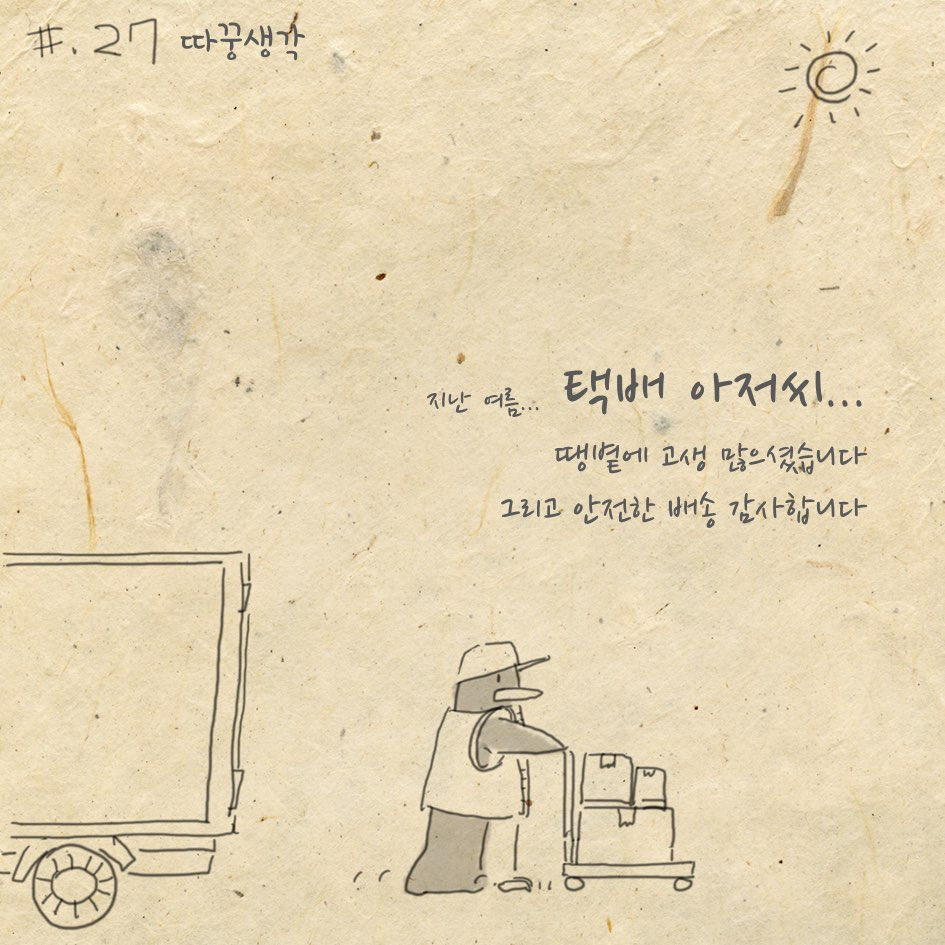 #.27 따꿍생각
지난 여름... 택배 아저씨...
땡볕에 고생 많으셨습니다
그리고 안전한 배송 감사합니다